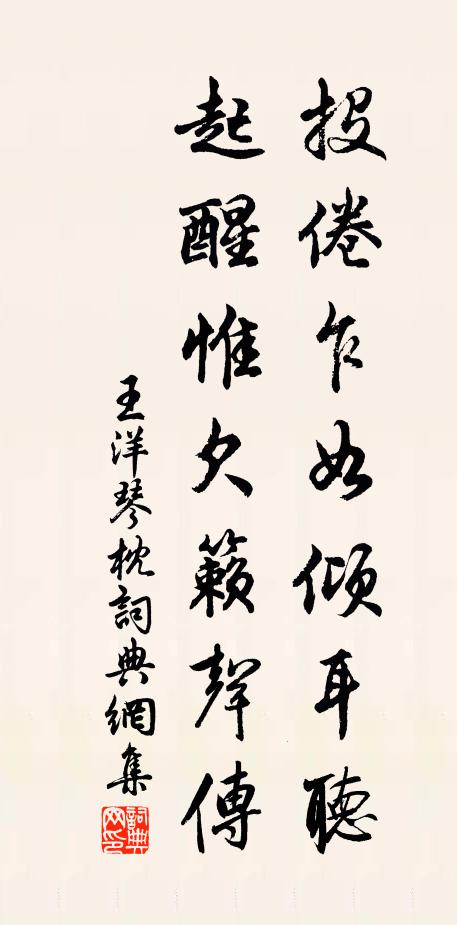 投倦乍如傾耳聽
起醒惟欠籟聲傳
王洋琴枕詞典網集
詞典网印